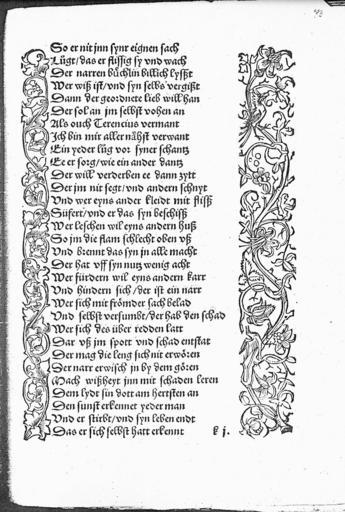 So er nit jnn synr eignen sach
Lůgt/das er flyssig sy vnd wach
Der narren bůchlin billich lyszt
Wer wiß ist/vnd syn selbs vergißt
Dann der geordnete lieb will han
Der sol an jm selbst vohen an
Als ouch Terencius vermant
Ich bin mir aller nåhst verwant
Ein yeder lůg vor syner schantz
Ee er sorg/wie ein ander dantz
Der will verderben ee dann zytt
Der jm nit segt/vnd andern schnyt
Vnd wer eyns ander kleidt mit fliß
Süfert/vnd er das syn beschiß
Wer leschen wil eyns andern huß
So jm die flam schlecht oben vß
Vnd brennt das syn jn alle macht
Der hat vff syn nutz wenig acht
Wer fürdern wil eyns andern karr
Vnd hindern sich/der ist ein narr
Wer sich mit frömder sach belad
Vnd selbst versumbt/der hab den schad
Wer sich des über redden latt
Dar vß jm spott vnd schad entstat
Der mag die leng sich nit erwören
Der narr erwisch jn by dem gören
Mach wißheyt jnn mit schaden leren
Dem lydt sin dott am hertsten an
Den sunst erkennet yeder man
Vnd er stirbt/vnd syn leben endt
Das er sich selbst hatt erkennt k j.